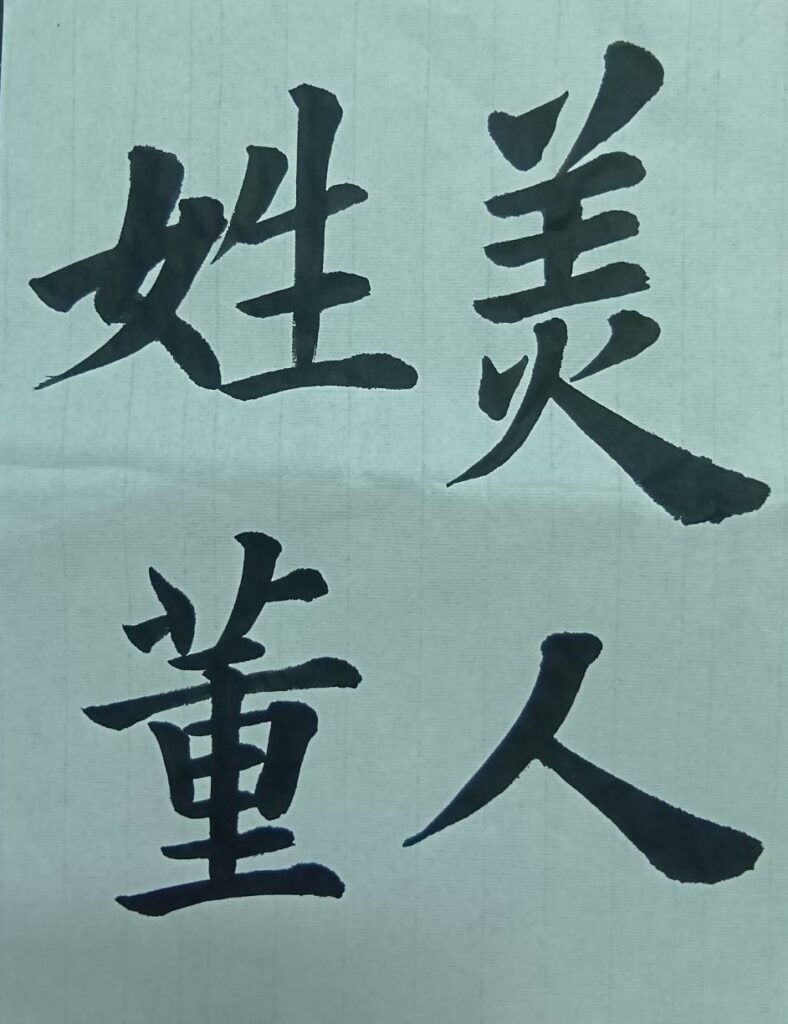 美人
姓董